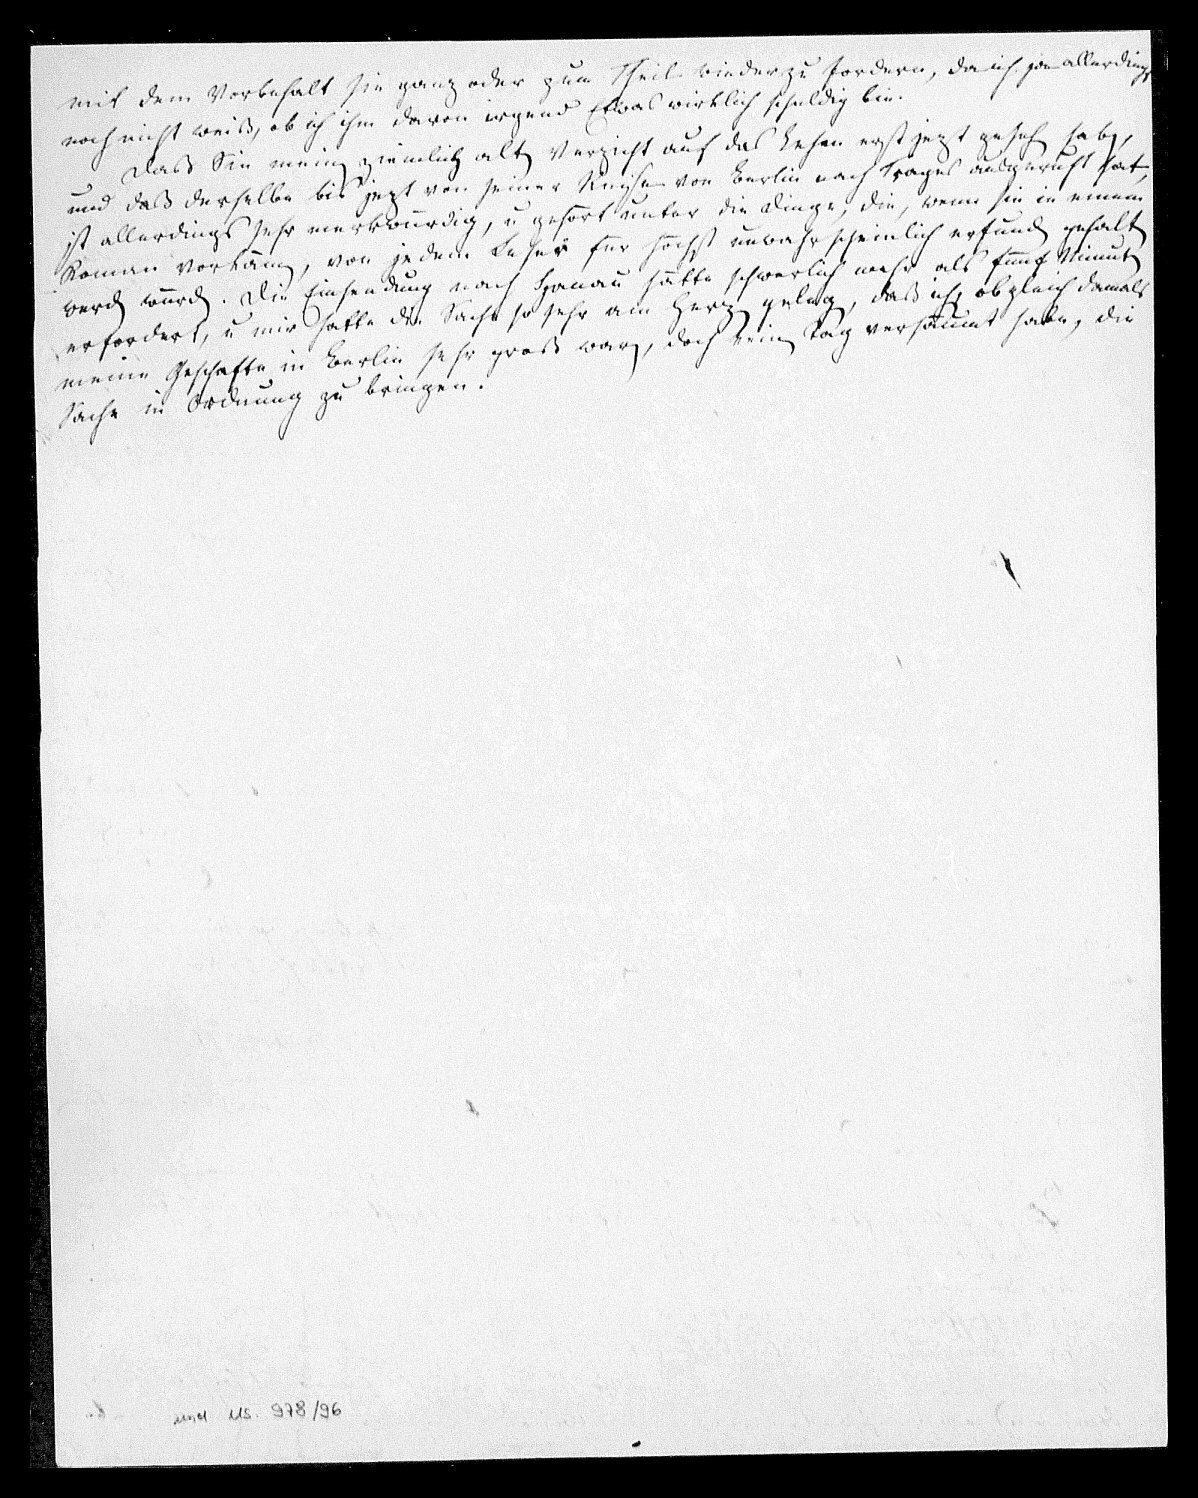 mit dem Vorbehalt sie ganz oder zum Theil wieder zu fordern, da ich ja allerdings
noch nicht weiß, ob ich ihm davon irgend Etwas wirklich schuldig bin.
Daß Sie meinen ziemlich alten Verzicht auf das Lehen erst jetzt gesehen haben,
und daß derselbe bis jezt von seiner Reise von Berlin nach Trages ausgeruht hat,
ist allerdings sehr merkwürdig, u gehört unter die Dinge, die, wenn sie in einem
Roman vorkämen, von jedem Leser für höchst unwahrscheinlich erfunden gehalten
werden würden. Die Einsendung nach Hanau hätte schwerlich mehr als fünf Minuten
erfordert, u mir hatte die Sache so sehr am Herzen gelegen, daß ich, obgleich damals
meine Geschäfte in Berlin sehr groß waren, doch keinen Tag versäumt habe, die
Sache in Ordnung zu bringen.
Ms. 978/96